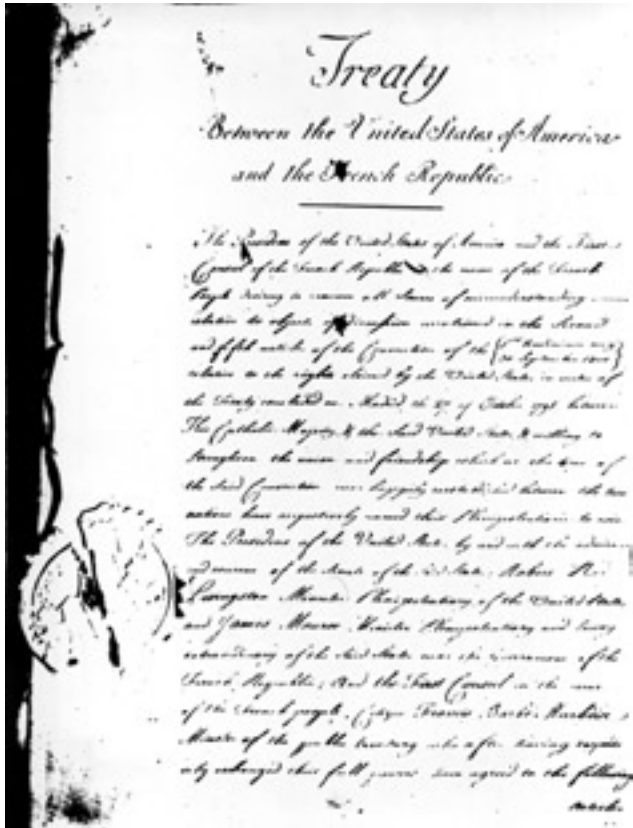 Treaty
Between the United States of America
and the French Republic
The President of the United States of America and the First
Consul of the French Republic in the name of the French
People desiring to remove all Source of misunderstanding
relative to objects of discussion mentioned in the Second
and fifth articles of the Convention of the
30 September 1800
relative to the rights claimed by the United States in virtue of
the Treaty concluded at Madrid the 27 of October 1795 between
His Catholic Majesty & the Said United States, & willing to
Strengthen the union and friendship which at the time of
the Said Convention was happily reestablished between the two
nations have respectively named their Plenipotentiaries to wit
The President of the United States, by and with the advice
and consent of the Senate of the Said States; Robert R.
Livingston Minister Plenipotentiary of the United States
and James Monroe Minister Plenipotentiary and Envoy
extraordinary of the Said States near the Government of the
French Republic; And the First Consul in the name
of the French people, Citizen Francis Barbé Marbois
Minister of the public treasury who after having
exchanged their full powers have agreed to the following
Articles